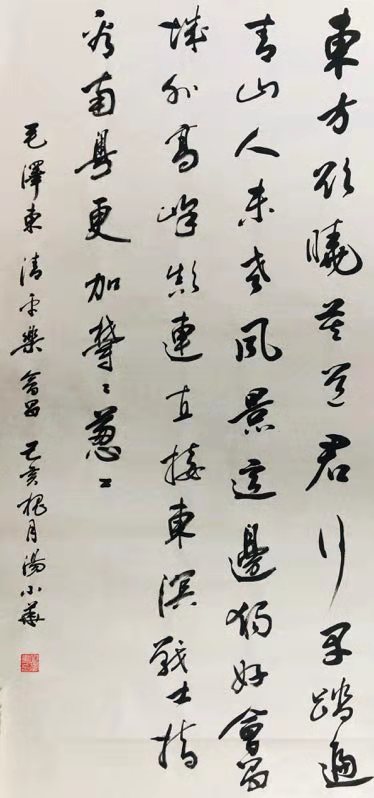 東方欲曉莫道君行早踏遍
青山人未老風景這邊獨好會昌
城外高峰顛連直接東溟戰士指
看南粵更加鬱〻蔥〻
毛澤東清平樂會昌 己亥槐月湯小